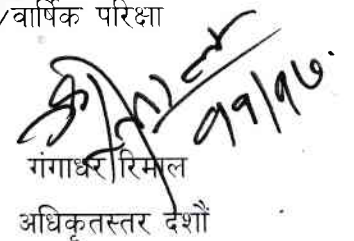 /वार्षिक परिक्षा
११/१७
गंगाधर रिमाल
अधिकृतस्तर दशौं